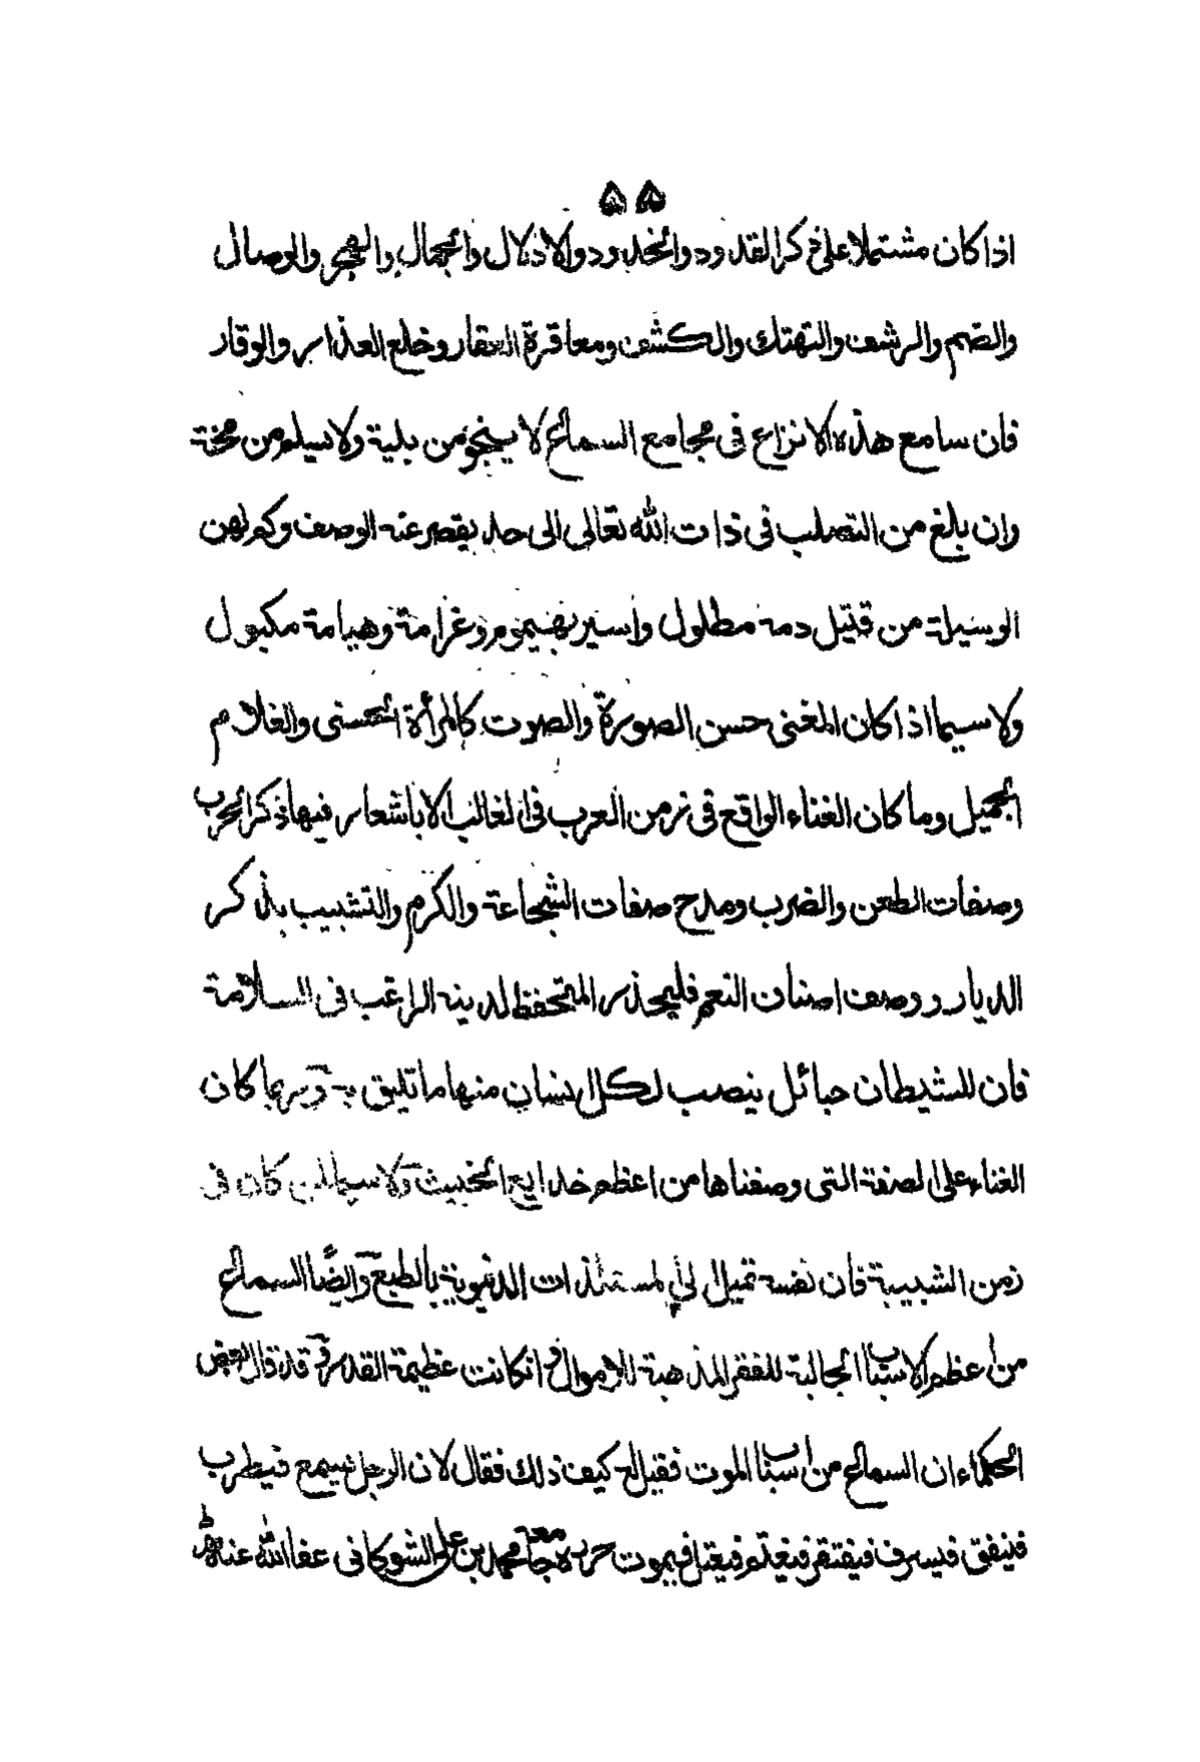 ۵۵
اذا كان مشتملا على ذكر القدود والخدود والاذلال والجمال والهجر والوصال
والضم والرشف والتهتك والكشف ومعاقرة العقار وخلع العذار والوقار
فان سامع هذه الانزاع فى مجامع السماع لا ينجو من بلية ولا سيلم من محنة
وان بلغ من التصلب فى ذات الله تعالى الى حد يقصر عنه الوصف وكم لهن
الوسيلة من قتيل دمه مطلول واسير بهموم وغرامة وهيامة مكبول
ولا سيما اذا كان المغنى حسن الصورة والصوت كالمرأة الحسنى والغلام
الجميل وما كان الغناء الواقع فى زمن العرب فى الغالب الا باشعار فيها ذكر الحرب
وصفات الطعن والضرب ومدح صفات الشجاعة والكرم والتشبيب بذكر
الديار ووصف اصناف النعم فليحذر المتحفظ لدينه الراغب فى السلامة
فان للشيطان حبائل ينصب لكل انسان منها ما تليق به وربما كان
الغناء على الصفة التى وصفناها من اعظم خدايع الخبيث ولا سيما لمن كان فى
زمن الشبيبة فان نفسه تميل الى المستلذات الدنيوية بالطبع وايضًا السماع
من اعظم الاسباب الجالبة للفقر المذهبة للاموال وانكانت عظيمة القدر وقد قال بعض
الحكماء ان السماع من اسباب الموت فقيل له كيف ذلك فقال لان الرجل يسمع فيطرب
فينفق فيسرف فيفتقر فيغتم فيعتل فيموت حرره جامعه محمد بن على الشوكانى عفا الله عنه